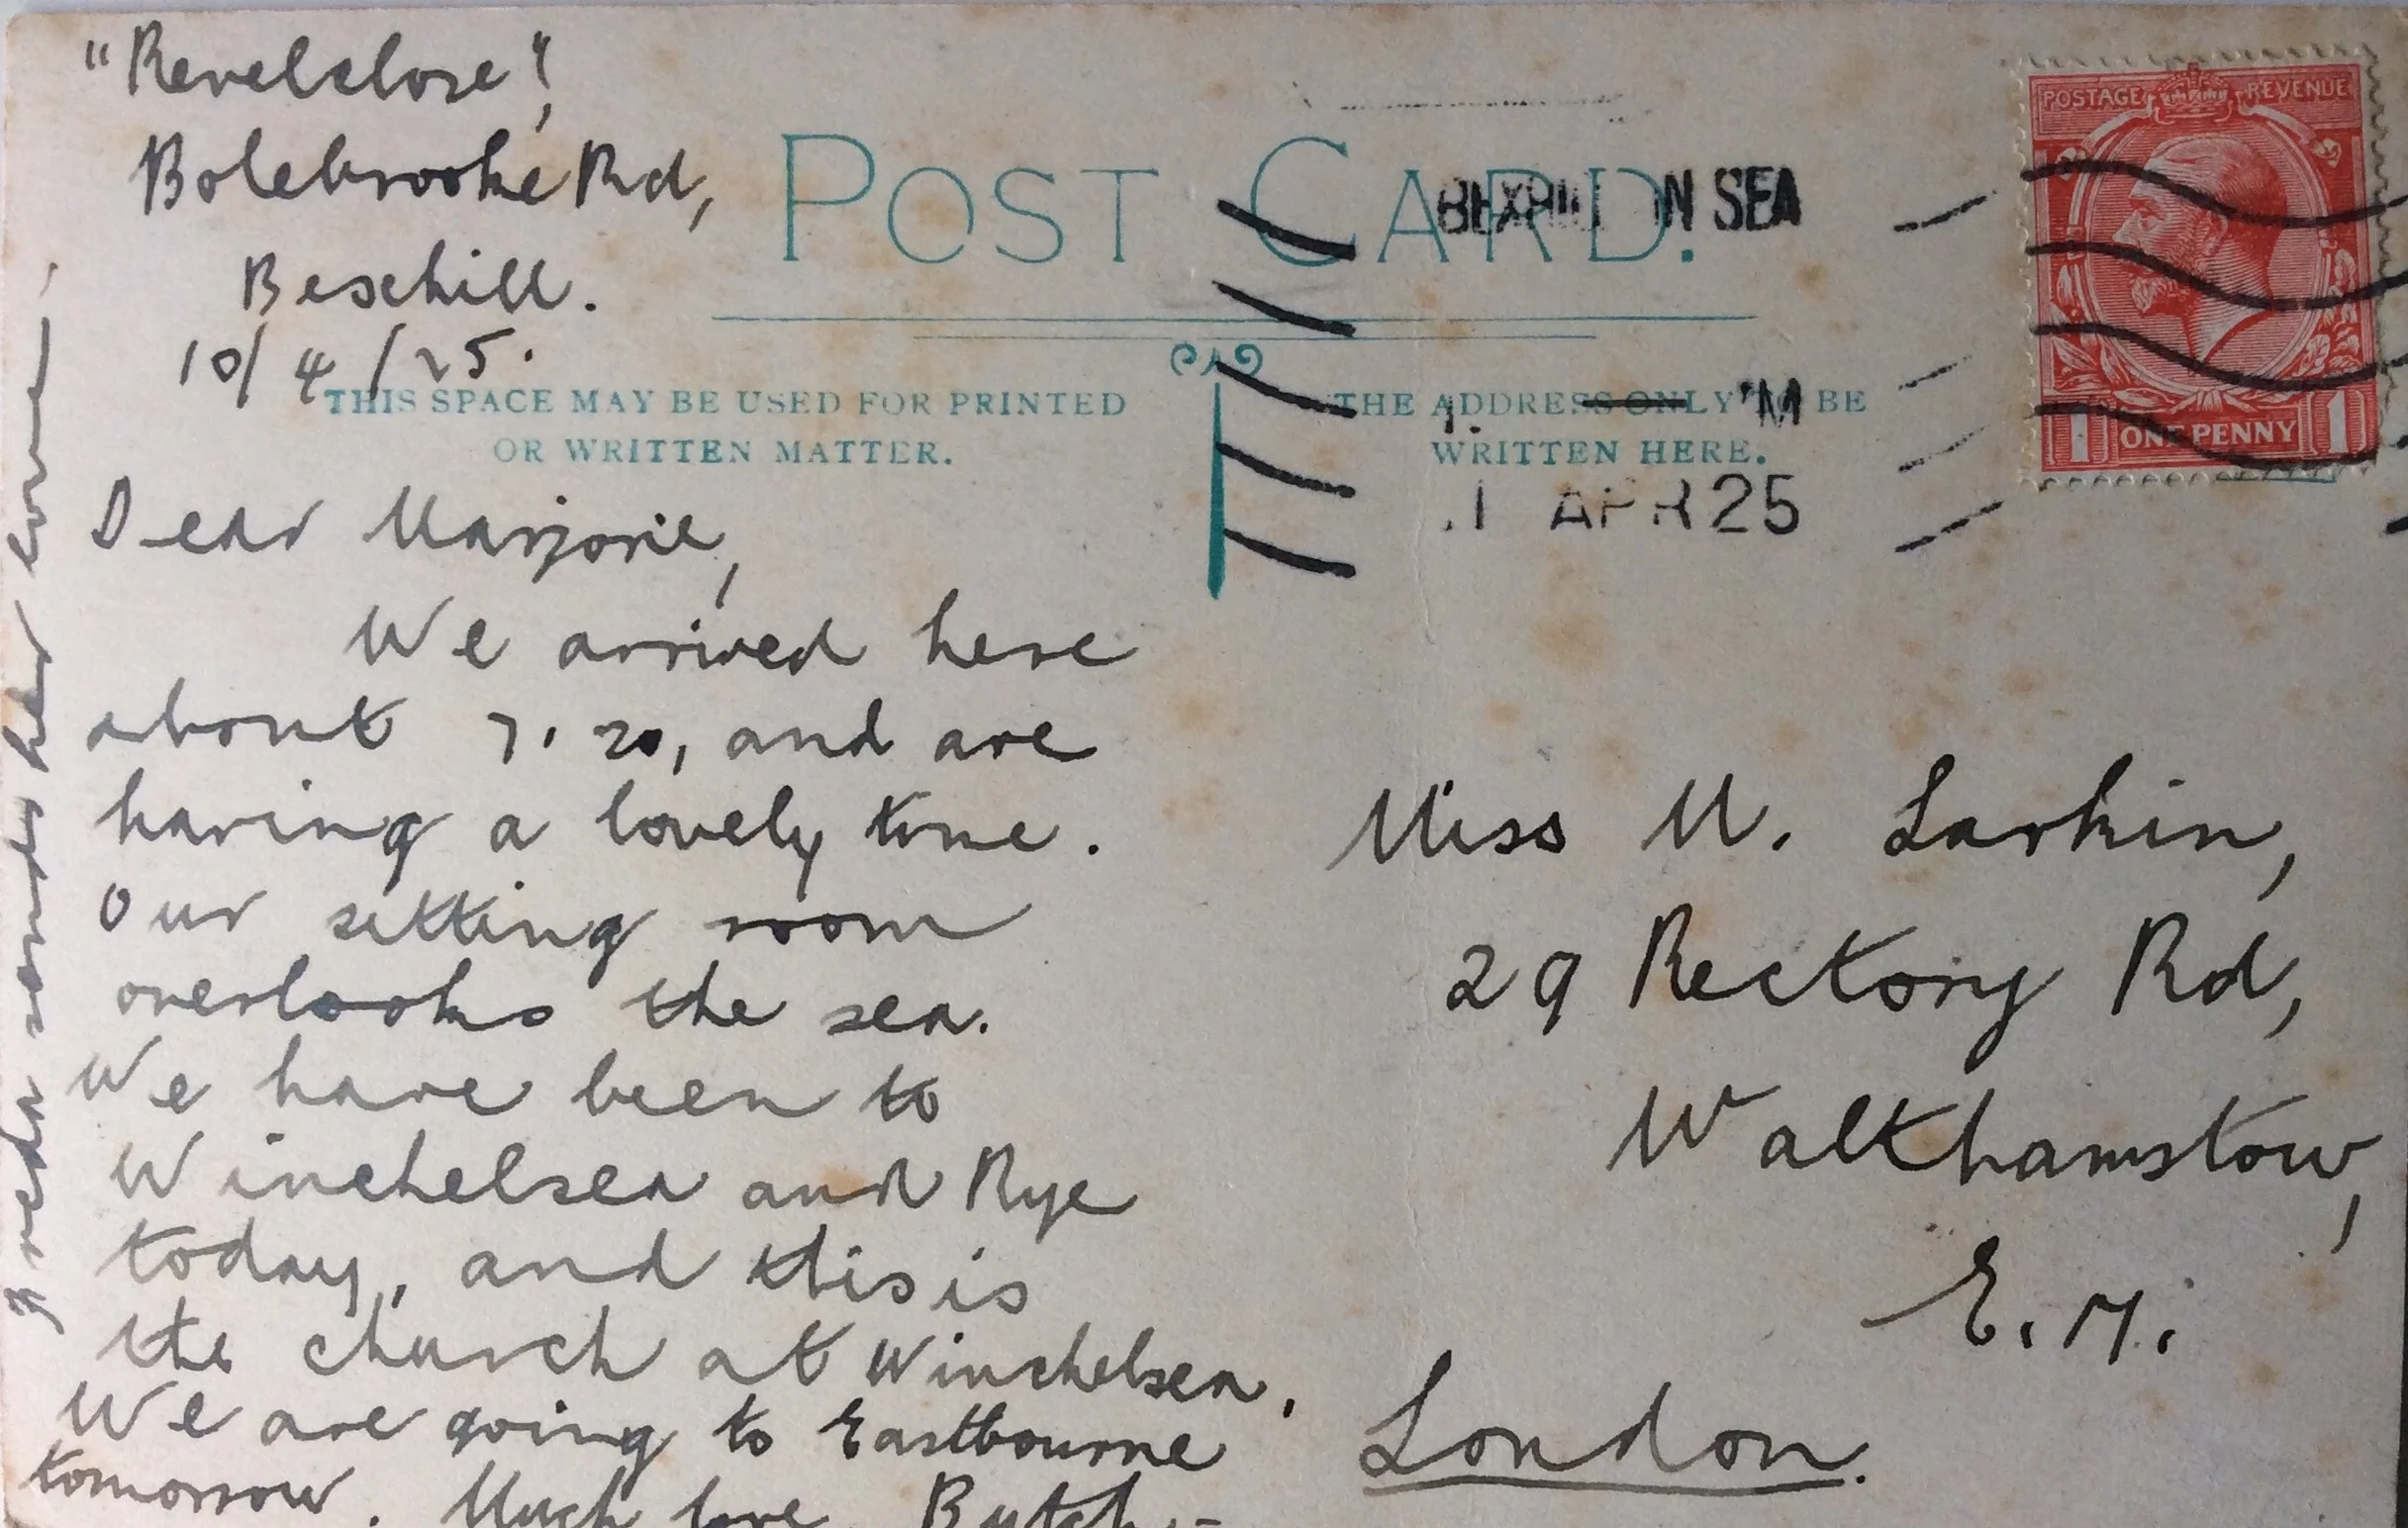 "Revelclose",
Bolebrooke Rd,
Bexhill.
10/4/25.
POST CARD.
THIS SPACE MAY BE USED FOR PRINTED
OR WRITTEN MATTER.
THE ADDRESS ONLY BE
WRITTEN HERE.
IN SEA
APR 25
POSTAGE REVENUE
1 ONE PENNY 1
Dear Marjorie,
We arrived here
about 7.20, and are
having a lovely time.
Our sitting room
overlooks the sea.
We have been to
Winchelsea and Rye
today, and this is
the church at Winchelsea.
We are going to Eastbourne
tomorrow. Much love. Butch
sends her love.
Miss M. Larkin,
29 Rectory Rd,
Walthamstow,
E.17.
London.